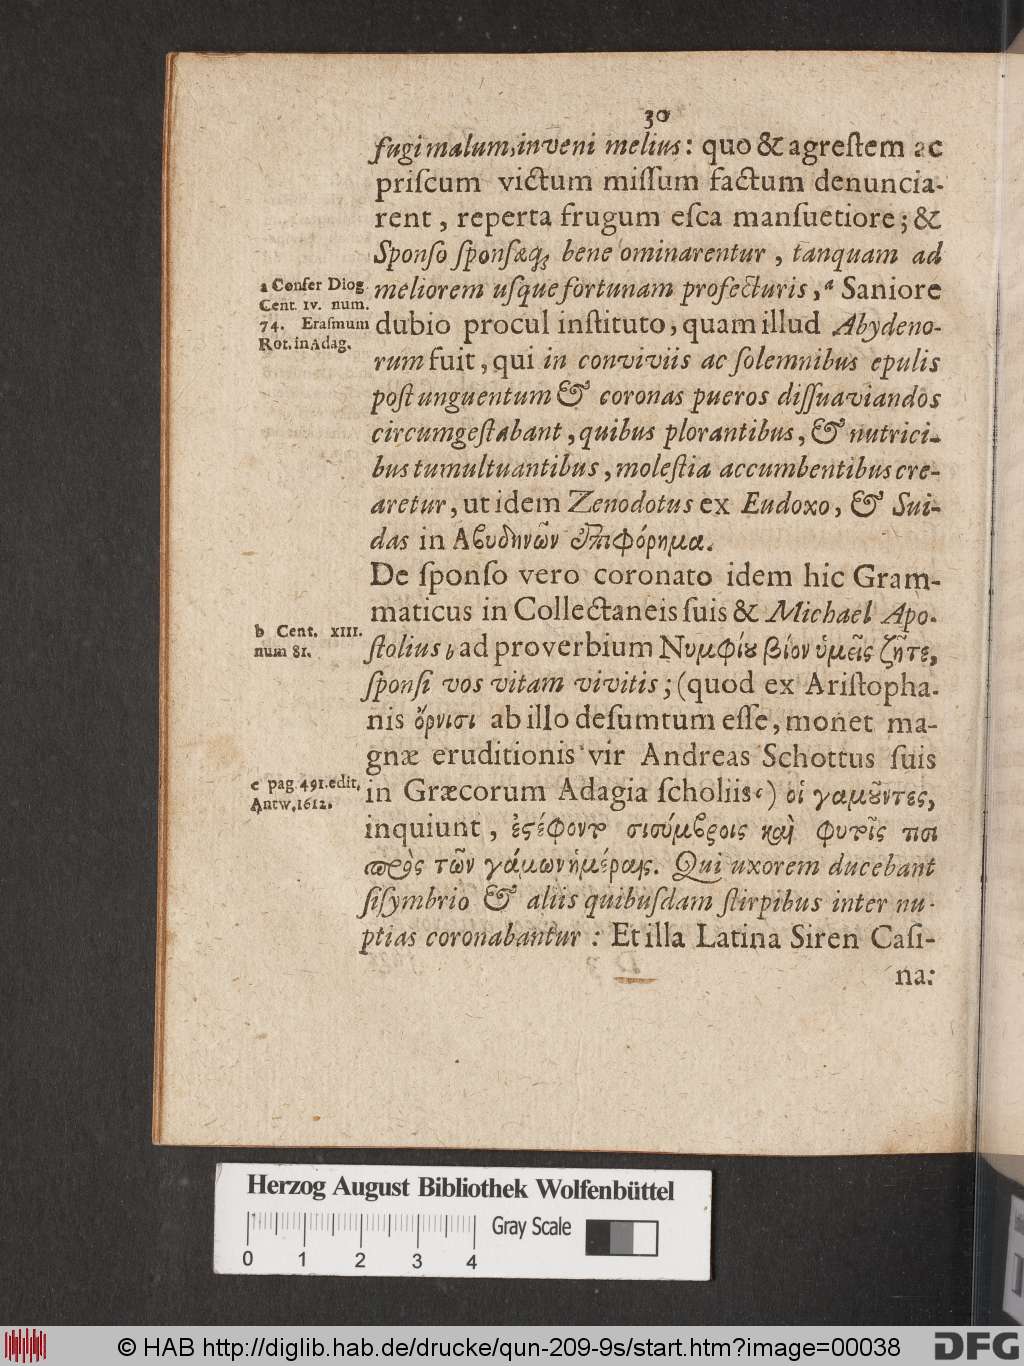 30
fugi malum, inveni melius: quo & agreſtem ac
priſcum victum miſſum factum denuncia-
rent, reperta frugum eſca manſuetiore; &
Sponſo ſponſæq; bene ominarentur, tanquam ad
meliorem uſque fortunam profecturis, a Saniore
dubio procul inſtituto, quam illud Abydeno-
rum fuit, qui in conviviis ac ſolemnibus epulis
poſt unguentum & coronas pueros diſſuaviandos
circumgeſtabant, quibus plorantibus, & nutrici-
bus tumultuantibus, moleſtia accumbentibus cre-
aretur, ut idem Zenodotus ex Eudoxo, & Sui-
das in Αβυδηνῶν ἐπιφόρημα.
De ſponſo vero coronato idem hic Gram-
maticus in Collectaneis ſuis & Michael Apo-
ſtolius b ad proverbium Νυμφίȣ βίον ὑμεῖς ζῆτε,
ſponſi vos vitam vivitis; (quod ex Ariſtopha-
nis ὄρνισι ab illo deſumtum eſſe, monet ma-
gnæ eruditionis vir Andreas Schottus ſuis
in Græcorum Adagia ſcholiis c) οἱ γαμȣ͂ντες,
inquiunt, ἐϛέφοντο σισύμβροις καὶ φυτοῖς τισι
πρὸς τῶν γάμων ἡμέραις. Qui uxorem ducebant
ſiſymbrio & aliis quibuſdam ſtirpibus inter nu-
ptias coronabantur: Et illa Latina Siren Caſi-
na:
a Confer Diog
Cent. IV. num.
74. Eraſmum
Rot. in Adag.
b Cent. XIII.
num 81.
c pag. 491. edit.
Antw. 1612.
Herzog August Bibliothek Wolfenbüttel
Gray Scale
0 1 2 3 4
© HAB http://diglib.hab.de/drucke/qun-209-9s/start.htm?image=00038
DFG